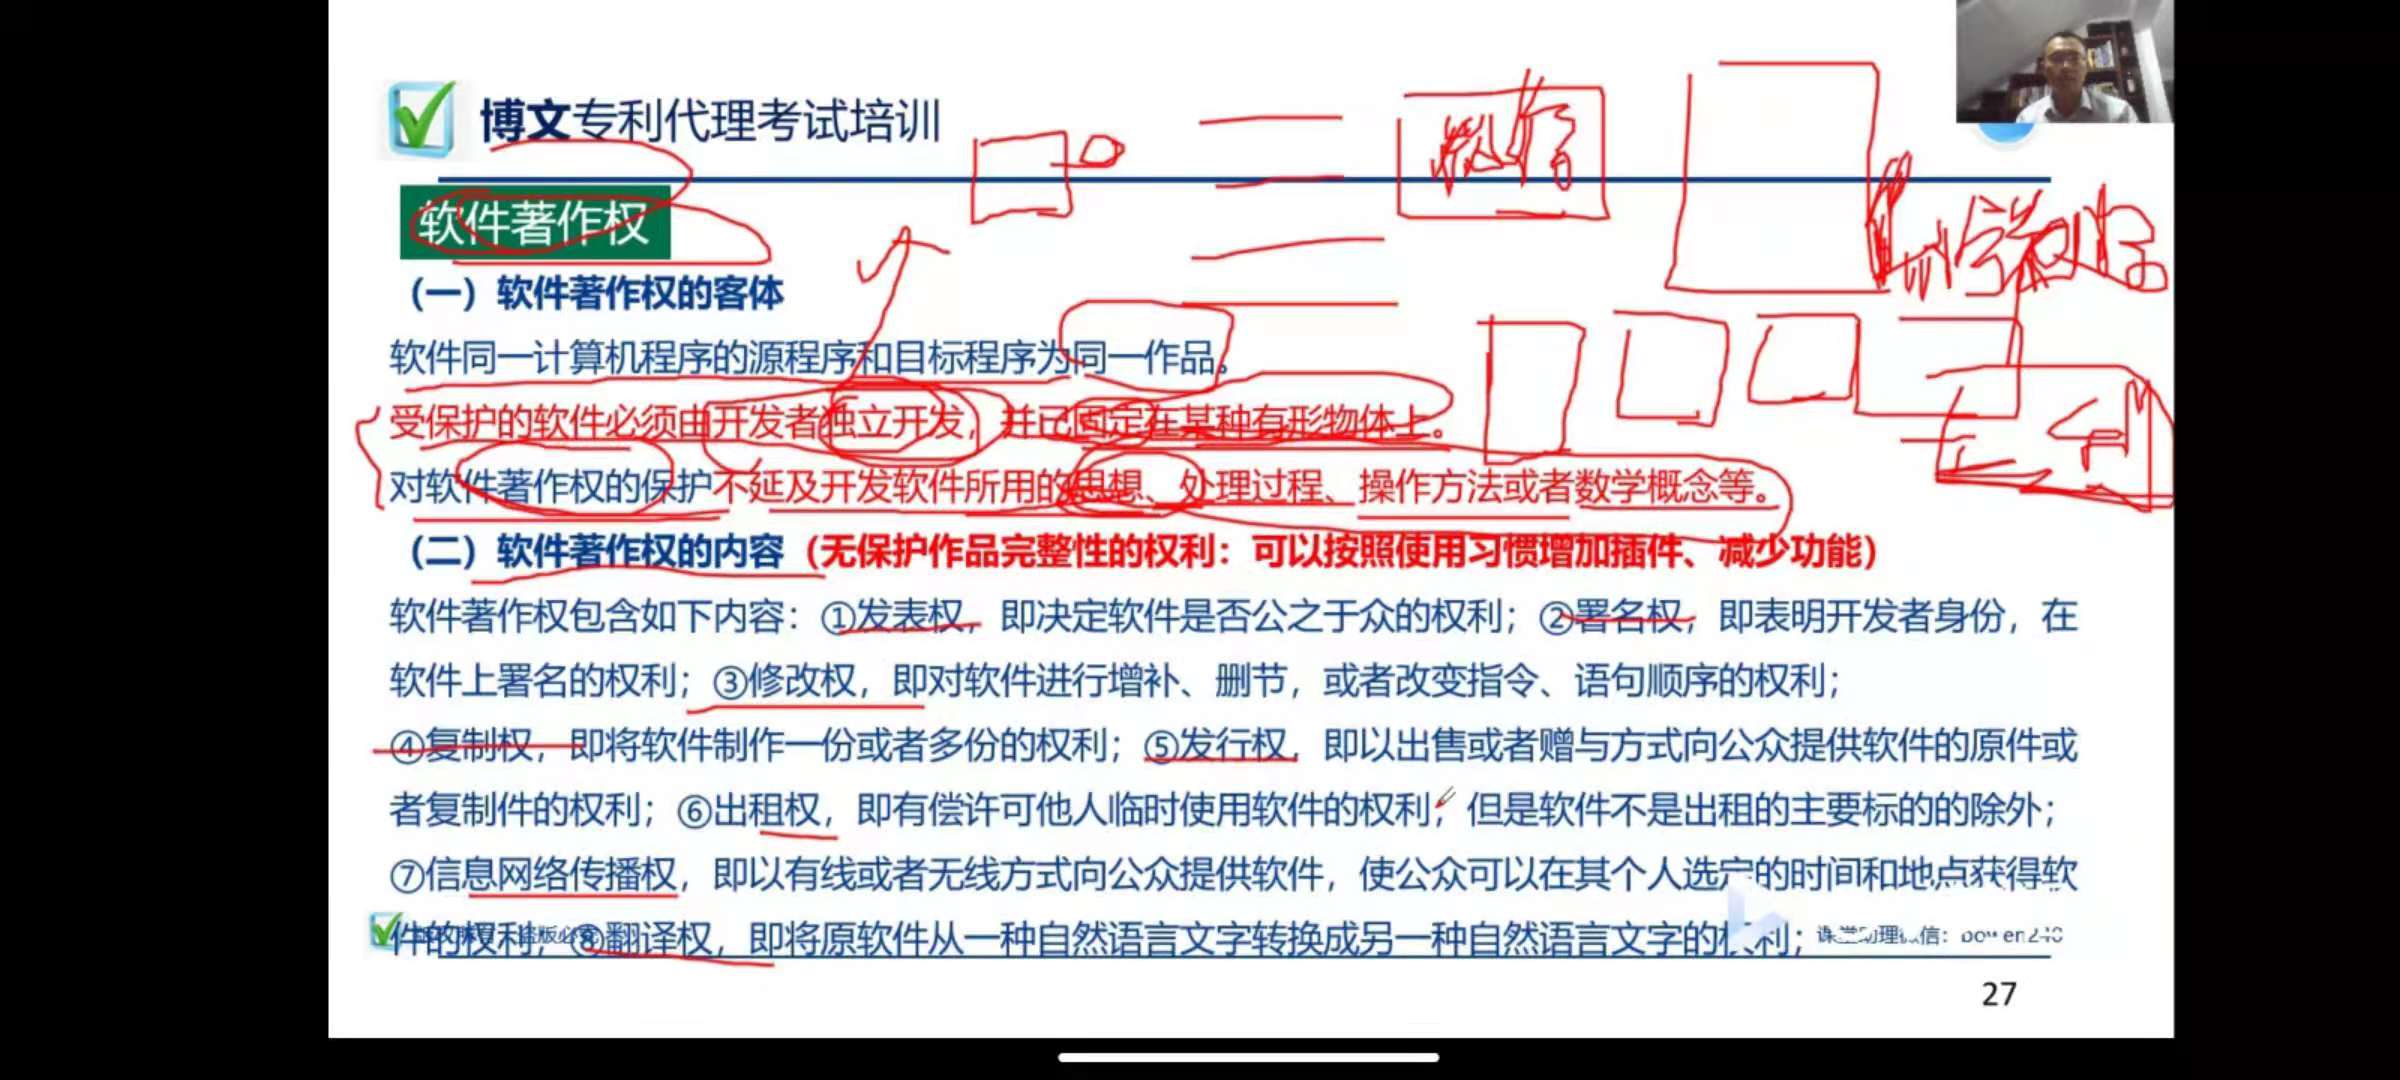 博文专利代理考试培训
软件著作权
（一）软件著作权的客体
软件同一计算机程序的源程序和目标程序为同一作品。
受保护的软件必须由开发者独立开发，并已固定在某种有形物体上。
对软件著作权的保护不延及开发软件所用的思想、处理过程、操作方法或者数学概念等。
（二）软件著作权的内容（无保护作品完整性的权利：可以按照使用习惯增加插件、减少功能）
软件著作权包含如下内容：①发表权，即决定软件是否公之于众的权利；②署名权，即表明开发者身份，在
软件上署名的权利；③修改权，即对软件进行增补、删节，或者改变指令、语句顺序的权利；
④复制权，即将软件制作一份或者多份的权利；⑤发行权，即以出售或者赠与方式向公众提供软件的原件或
者复制件的权利；⑥出租权，即有偿许可他人临时使用软件的权利，但是软件不是出租的主要标的的除外；
⑦信息网络传播权，即以有线或者无线方式向公众提供软件，使公众可以在其个人选定的时间和地点获得软
件的权利；⑧翻译权，即将原软件从一种自然语言文字转换成另一种自然语言文字的权利；
27